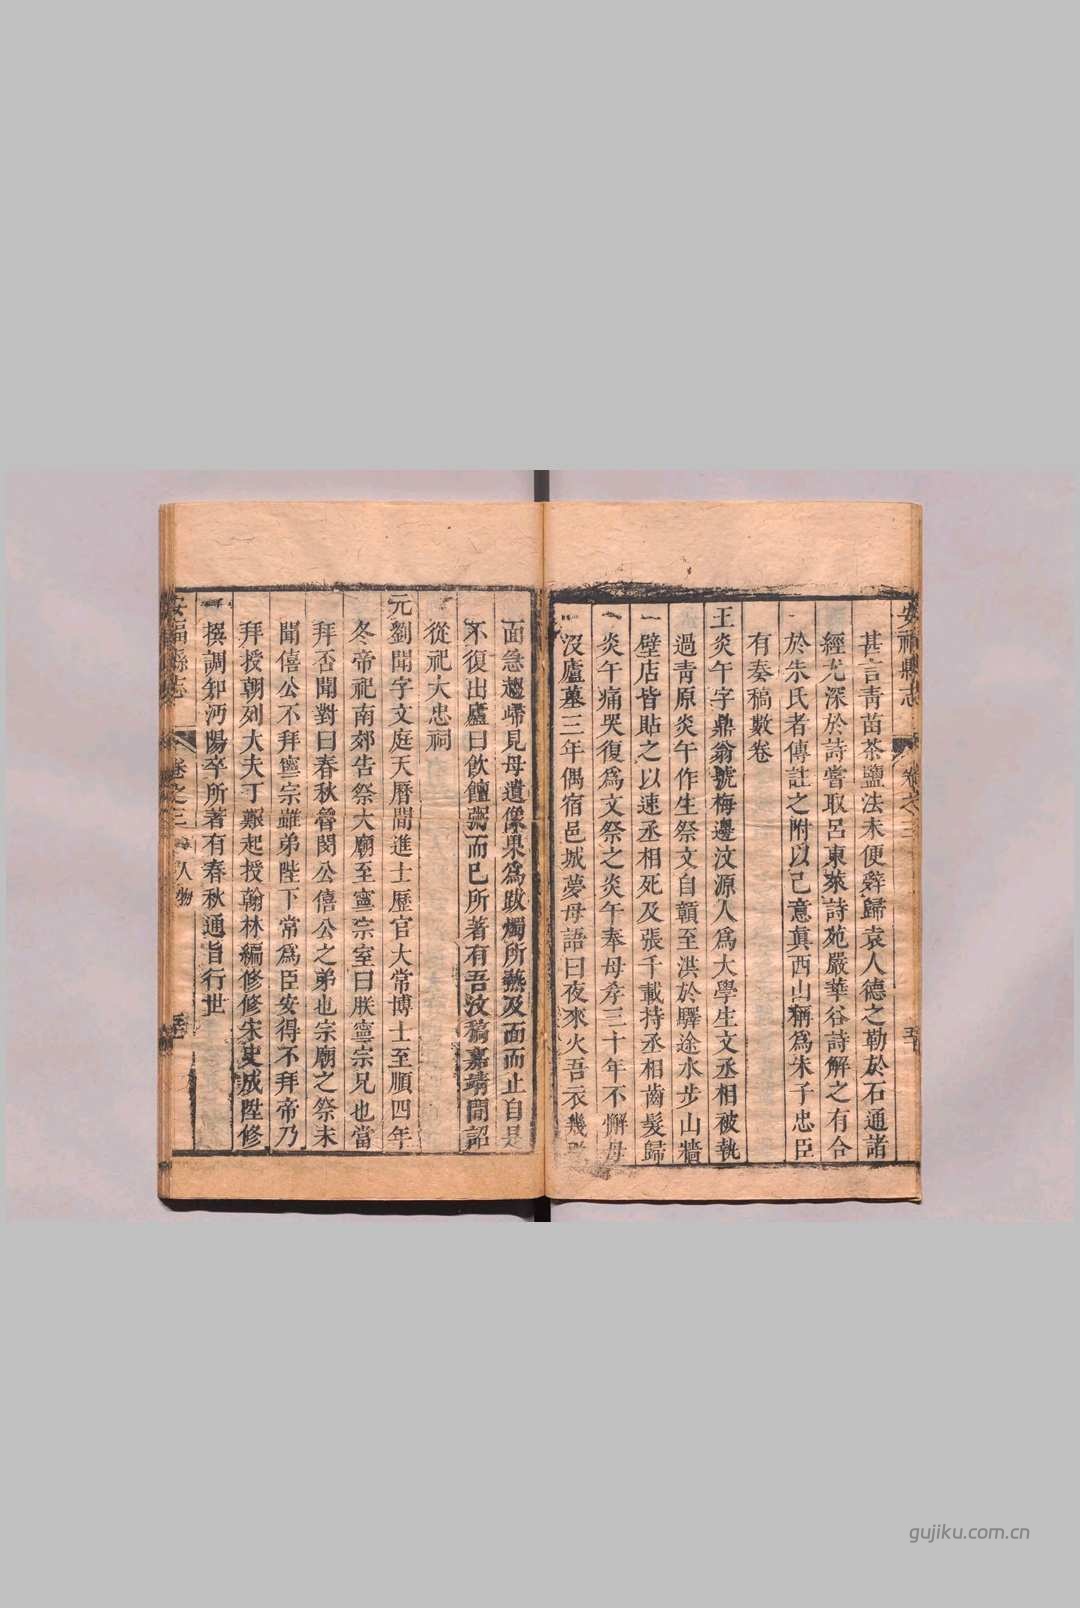 安福縣志
卷之三
甚言青苗茶鹽法未便辭歸袁人德之勒於石通諸
經尤深於詩嘗取呂東萊詩苑嚴華谷詩解之有合
於朱氏者傳註之附以己意眞西山稱爲朱子忠臣
有奏稿數卷
王炎午字鼎翁號梅邊汶源人爲大學生文丞相被執
過青原炎午作生祭文自贛至洪於驛途水步山牆
壁店皆貼之以速丞相死及張千載持丞相齒髮歸
炎午痛哭復爲文祭之炎午奉母孝三十年不懈母
沒廬墓三年偶宿邑城夢母語曰夜來火吾衣幾
面急趨歸見母遺像果爲跋燭所爇及面而止自是
不復出廬日飲饘粥而已所著有吾汶稿嘉靖間詔
從祀大忠祠
元劉聞字文庭天曆間進士歷官大常博士至順四年
冬帝祀南郊告祭大廟至寧宗室曰朕寧宗兄也當
拜否聞對曰春秋魯閔公僖公之弟也宗廟之祭未
聞僖公不拜寧宗雖弟陛下常爲臣安得不拜帝乃
拜授朝列大夫丁艱起授翰林編修修宋史成陞修
撰調知沔陽卒所著有春秋通旨行世
安福縣志
卷之三
人物
gujiku.com.cn